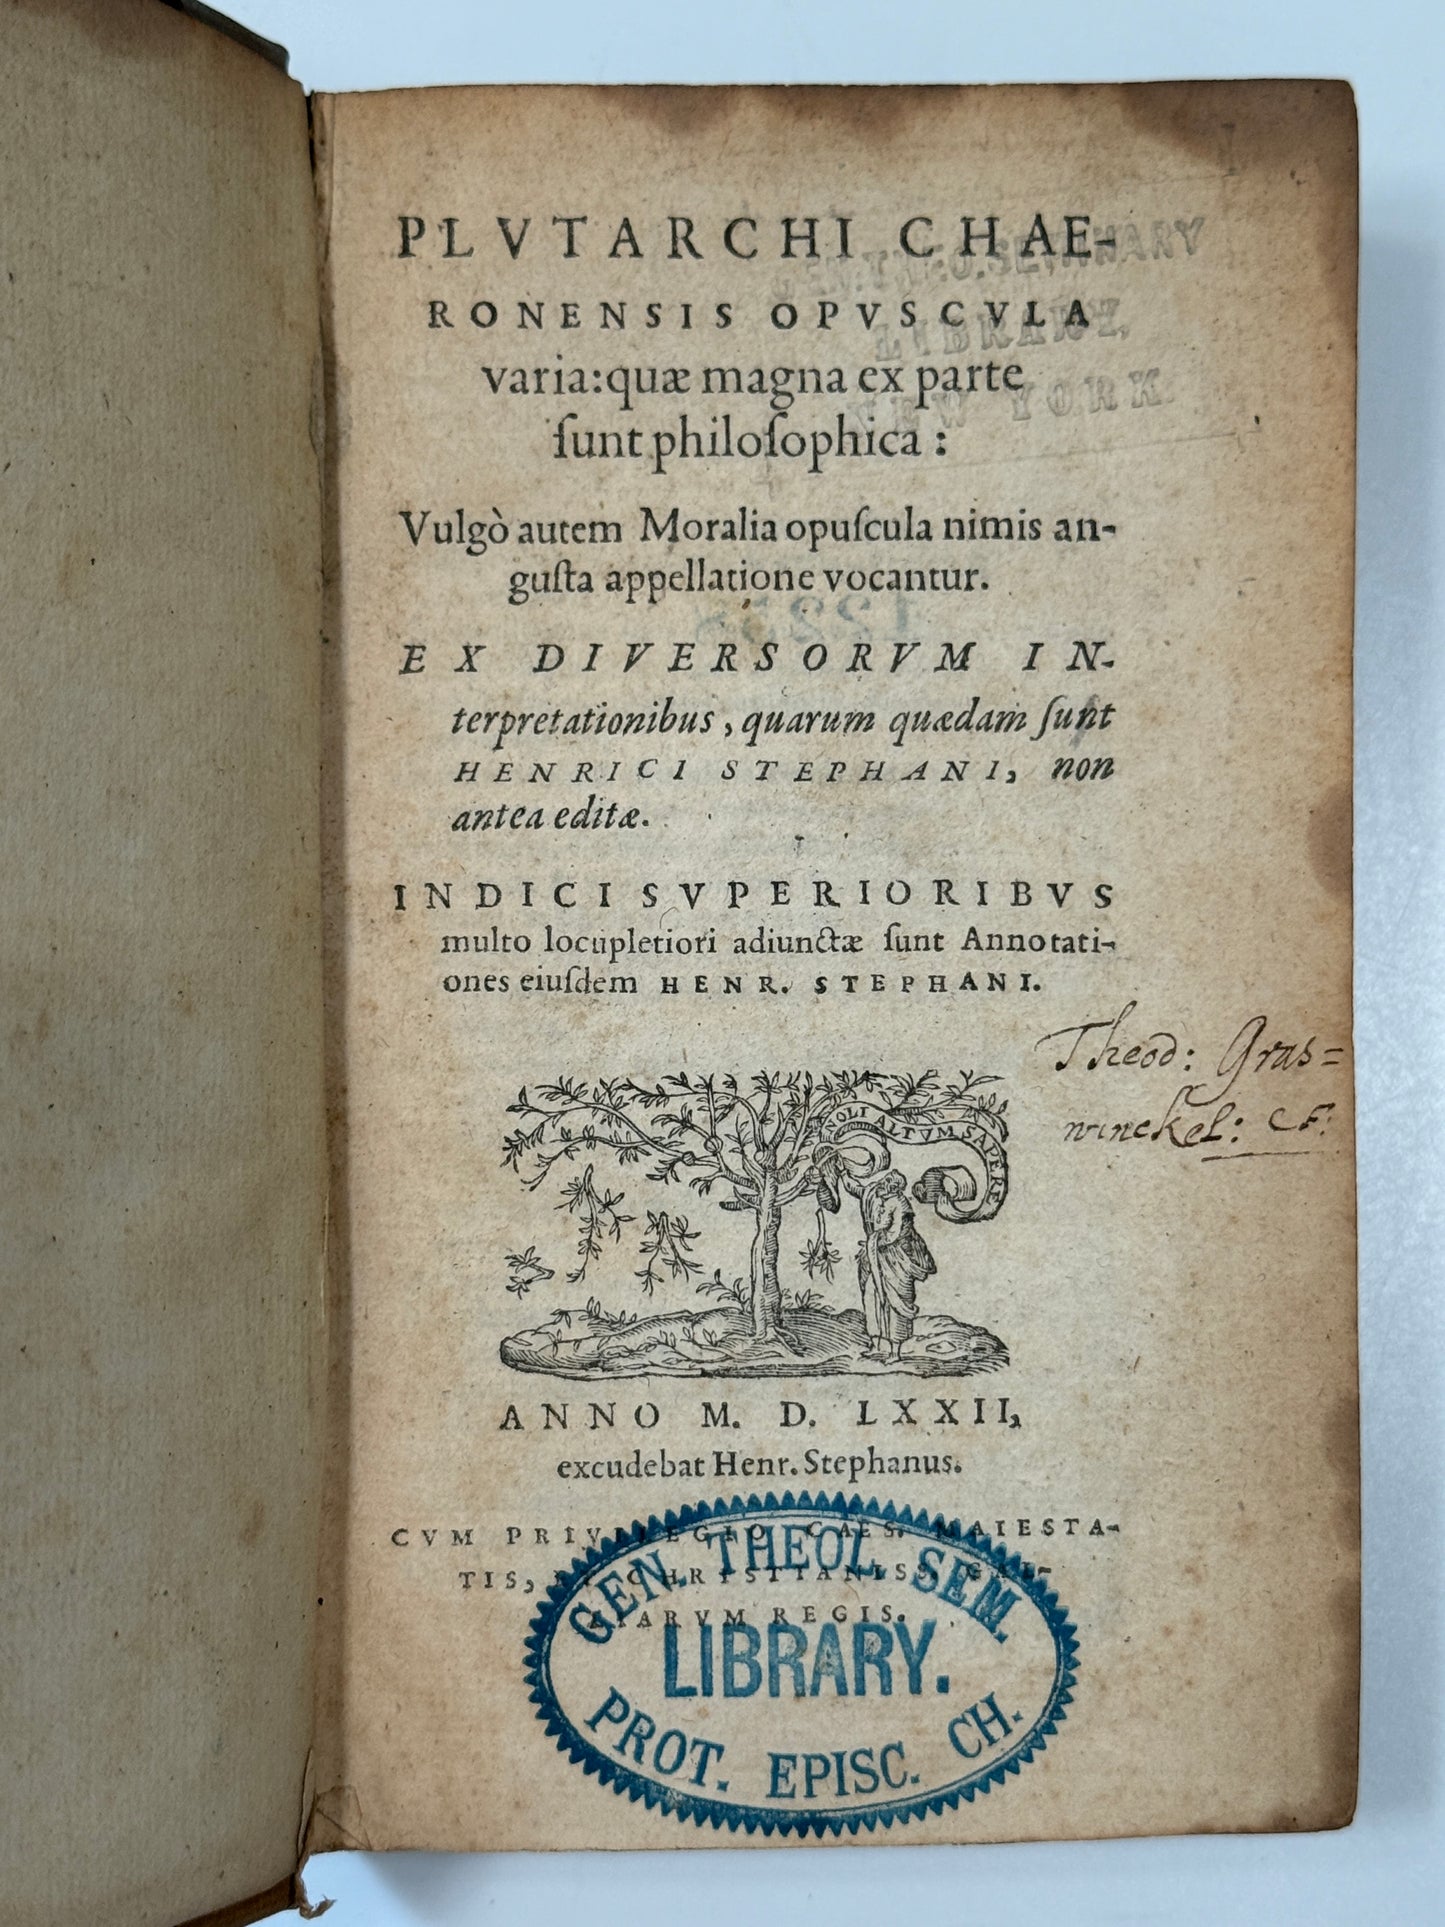 PLVTARCHI CHAE-
RONENSIS OPVSCVLA
varia: quæ magna ex parte
ſunt philoſophica:
Vulgò autem Moralia opuſcula nimis an-
guſta appellatione vocantur.
EX DIVERSORVM IN-
terpretationibus, quarum quædam ſunt
HENRICI STEPHANI, non
antea editæ.
INDICI SVPERIORIBVS
multo locupletiori adiunctæ ſunt Annotati-
ones eiuſdem HENR. STEPHANI.
Theod: Gras=
winckel: CF:
NOLI ALTVM SAPERE
ANNO M. D. LXXII,
excudebat Henr. Stephanus.
CVM PRIVILEGIO CAES. MAIESTA-
TIS, ET CHRISTIANISS. GAL-
LIARVM REGIS.
GEN. THEOL. SEM.
LIBRARY.
PROT. EPISC. CH.
GEN. THEO. SEMINARY
LIBRARY,
NEW YORK